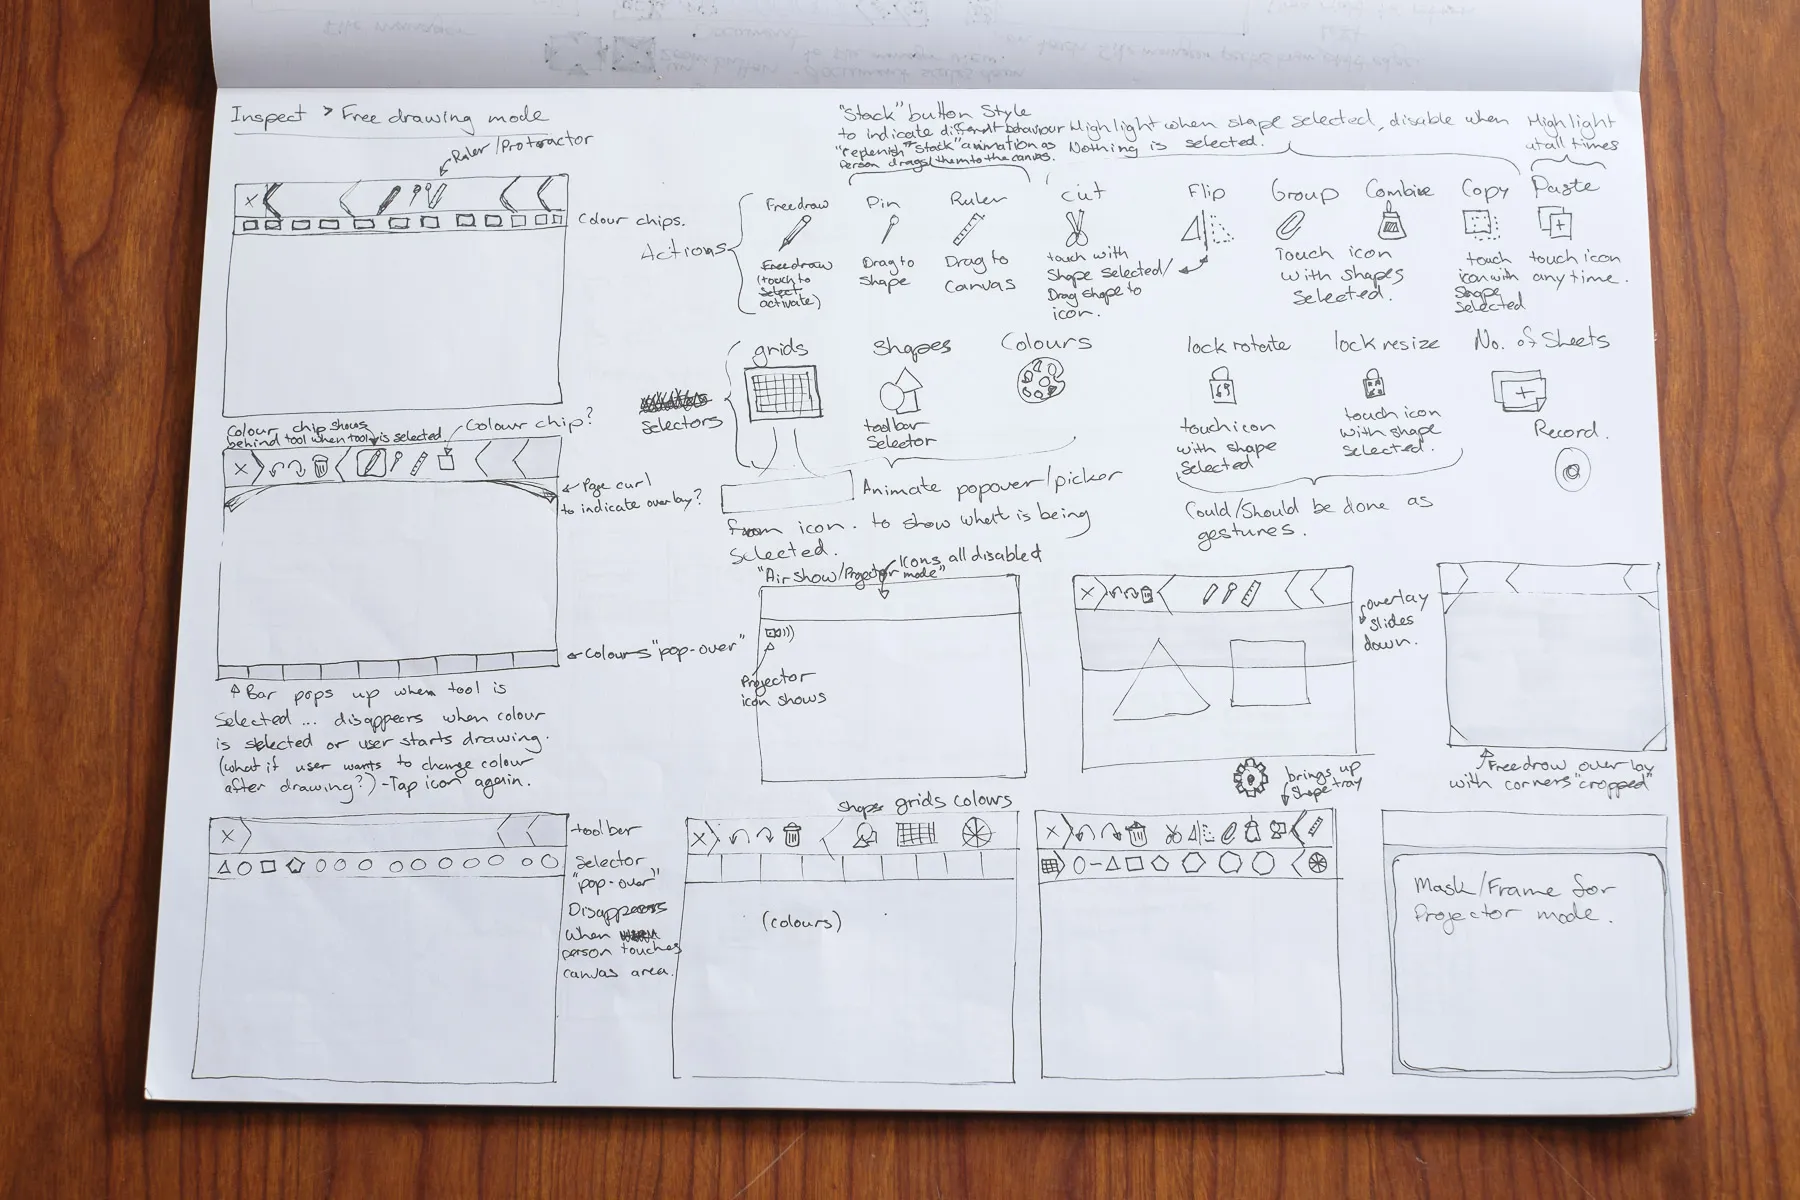 Inspect > Free drawing mode
Ruler/Protractor
Colour chips.
"Stack" button Style
to indicate different behaviour
"replenish stack" animation as
person drags them to the canvas.
Highlight when shape selected, disable when
Nothing is selected.
Highlight
at all times
Actions
Freedraw
Pin
Ruler
Cut
Flip
Group
Combine
Copy
Paste
Freedraw
(touch to
select
activate)
Drag to
shape
Drag to
Canvas
touch with
Shape selected/
Drag shape to
icon.
Touch icon
with shapes
selected.
touch
icon with
Shape
Selected
touch icon
any time.
Selectors
grids
Shapes
Colours
lock rotate
lock resize
No. of Sheets
toolbar
Selector
touch icon
with shape
selected
touch icon
with shape
selected.
Record.
Animate popover/picker
from icon. to show what is being
Selected.
Could/Should be done as
gestures.
Colour chip shows
behind tool when tool is selected
Colour chip?
Page curl
to indicate overlay?
Colours "pop-over"
Bar pops up when tool is
Selected ... disappears when colour
is selected or user starts drawing.
(what if user wants to change colour
after drawing?) - Tap icon again.
"Airshow/Projector mode"
Icons all disabled
Projector
icon shows
overlay
slides
down.
Freedraw overlay
with corners "cropped"
toolbar
Selector
"pop-over"
Disappears
when
person touches
canvas area.
shapes grids colours
(colours)
brings up
shape tray
Mask/Frame for
Projector mode.